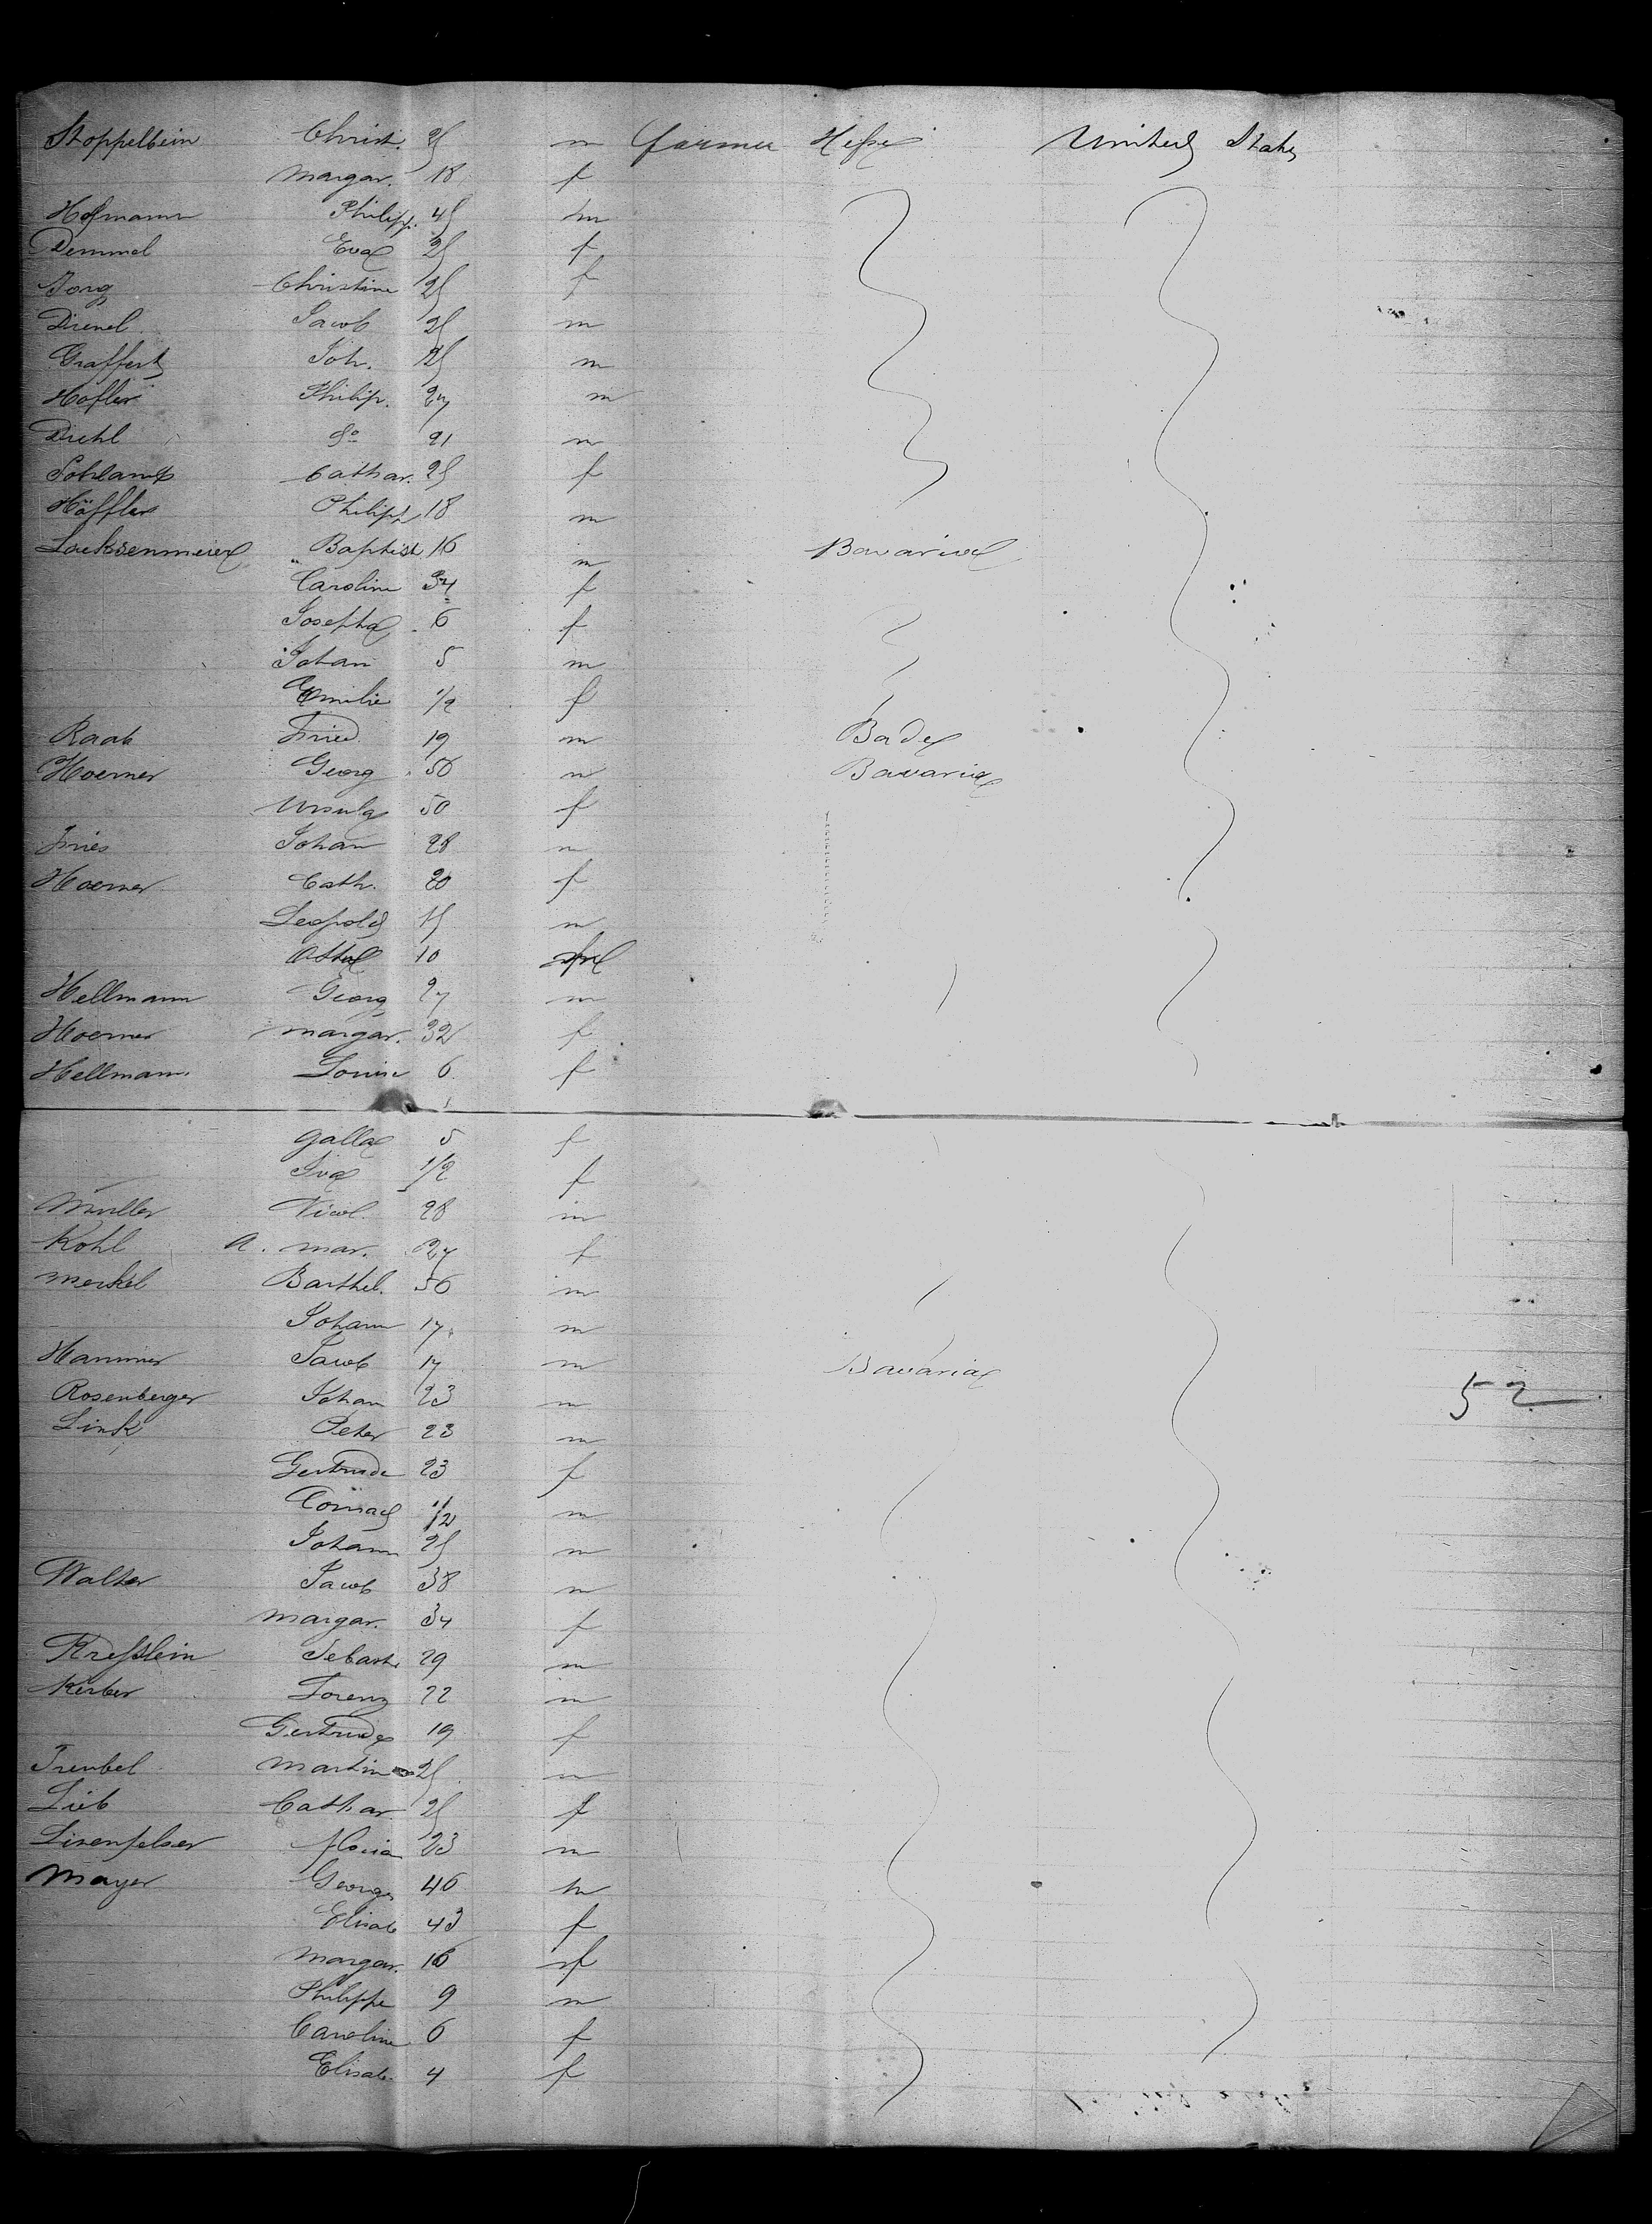 Stoppelbein Christ. 25 m farmer Hesse United States
Margar. 18 f
Hofmann Philipp. 45 m
Demmel Eva 25 f
Jorg Christine 25 f
Dienel Jacob 25 m
Graffert Joh. 25 m
Höfler Philip. 27 m
Diehl do 21 m
Sohland Cathar. 25 f
Höffler Philipp 18 m
Lacksenmeier Baptist 16 m Bavaria
Caroline 34 f
Josepha 6 f
Johan 5 m
Emilie 1/2 f
Raab Fried. 19 m Bade
Hoerner Georg 50 m Bavaria
Ursula 50 f
Fries Johan 28 m
Hoerner Cath. 20 f
Leopold 15 m
10
Hellmann Georg 27 m
Hoerner Margar. 32 f
Hellmann Louise 6 f
Galla 5 f
Iva 1/2 f
Muller Nicol. 28 m
Kohl A. Mar. 27 f
Merkel Barthel. 56 m
Johann 17 m
Hammer Jacob 17 m Bavaria
Rosenberger Johan 23 m 52
Link Peter 23 m
Gertrude 23 f
Conrad 1/2 m
Johann 25 m
Walter Jacob 38 m
Margar. 34 f
Kresslein Sebast. 29 m
Kerber Lorenz 22 m
Gertrude 19 f
Treubel Martin 25 m
Lieb Cathar. 25 f
Lisenfelser 23 m
Mayer George 46 m
Elisab 43 f
Margar. 16 f
Philippe 9 m
Caroline 6 f
Elisab. 4 f